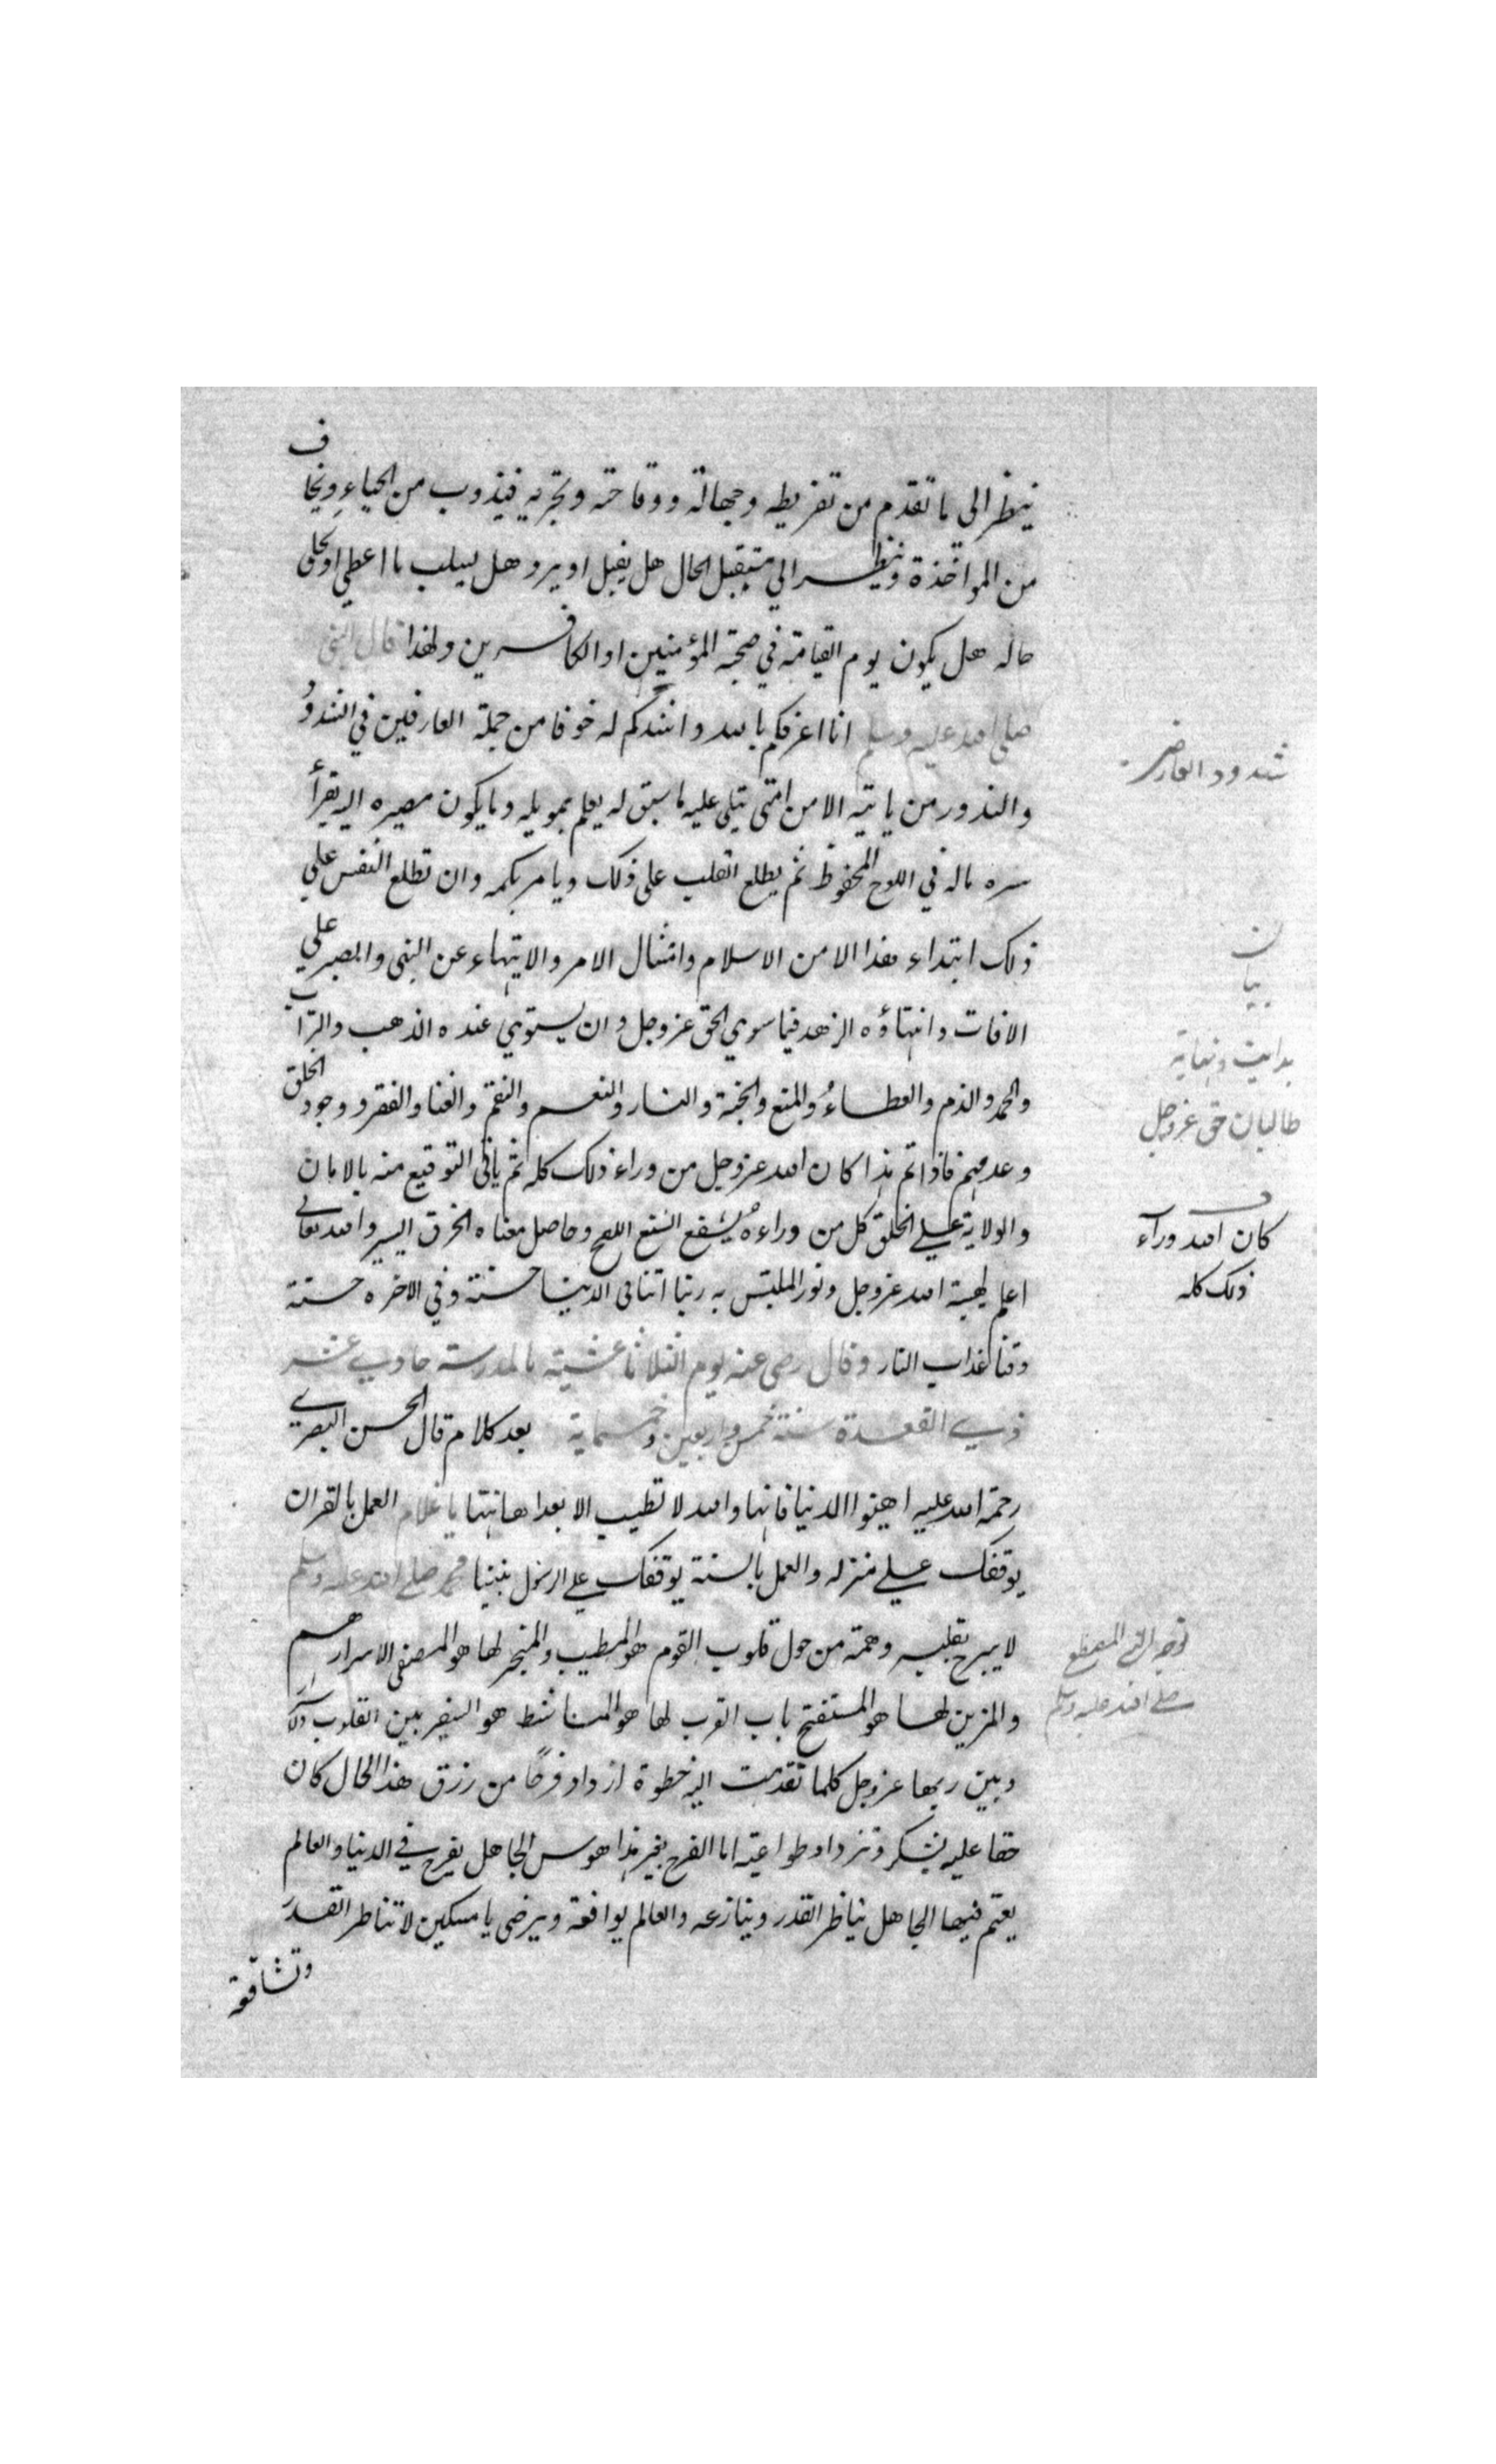 ينظر الى ما تقدم من تفريطه وجهالته ووقاحته وتجريه فيذوب من الحياء ويخاف
من المواخذة وينظر الي مستقبل الحال هل يقبل او يرد هل يسلب ما اعطي او يخلى
حاله هل يكون يوم القيامة في صحبة المؤمنين او الكافرين ولهذا قال النبي
صلى الله عليه وسلم انا اعرفكم بالله واشدكم له خوفا من جملة العارفين في الشذوذ
شذود العارض
والندور من ياتيه الامن امتى يتلى عليه ما سبق له يعلم بمويله وما يكون مصيره اليه يقرأ
سره ماله في اللوح المحفوظ ثم يطلع القلب على ذلك ويامر بكتمه وان تطلع النفس علي
ذلك ابتداء هذا الامن الاسلام وامتثال الامر والانتهاء عن النهى والصبر علي
بيان
الافات وانتهاؤه الزهد فيما سوي الحق عز وجل وان يستوي عنده الذهب والتراب
بدايت ونهاية
والحمد والذم والعطاء والمنع والجنة والنار والنعم والنقم والغنا والفقر ووجود الخلق
طالبان حق عز وجل
وعدمهم فاذا تم هذا كان الله عز وجل من وراء ذلك كله ثم ياتى التوقيع منه بالامان
والولاية علي الخلق كل من وراءه يشفع اللمح وحاصل معناه الخرق اليسير والله تعالى
كان الله ورآء
اعلم لهيبة الله عز وجل ونور الملتبس به ربنا اتنا في الدنيا حسنة وفي الاخره حسنة
ذلك كله
وقنا عذاب النار وقال رضى عنه يوم الثلاثا عشية بالمدرسة حادي عشر
ذي القعدة سنة خمس واربعين وخمسماية بعد كلام قال الحسن البصري
رحمة الله عليه اهينوا الدنيا فانها والله لا تطيب الا بعد اهانتها يا غلام العمل بالقران
يوقفك علي منزله والعمل بالسنة يوقفك علي الرسول نبينا محمد صلى الله عليه وسلم
لا يبرح بقلبه وهمته من حول قلوب القوم هو المطيب والمبخر لها هو المصفى الاسرارهم
توجه النبي المصطفى
والمزين لها هو المستفتح باب القرب لها هو الماشط هو السفير بين القلوب والاسرار
صلى الله عليه وسلم
وبين ربها عز وجل كلما تقدمت اليه خطوة ازداد فرحًا من رزق هذا الحال كان
حقا عليه يشكر وتزداد طواعيته اما الفرح بغير هذا هوس الجاهل يفرح في الدنيا والعالم
يغتم فيها الجاهل يناظر القدر وينازعه والعالم يوافقه ويرضى يا مسكين لا تناظر القدر
وتشاققه